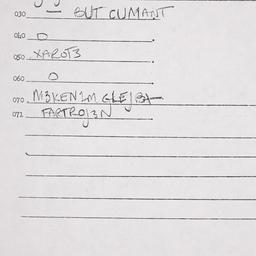 030 — BUT CUMANT
040 O
050 XAROT3
060 O
070 M3KEN1M
072 FARTROJ3N